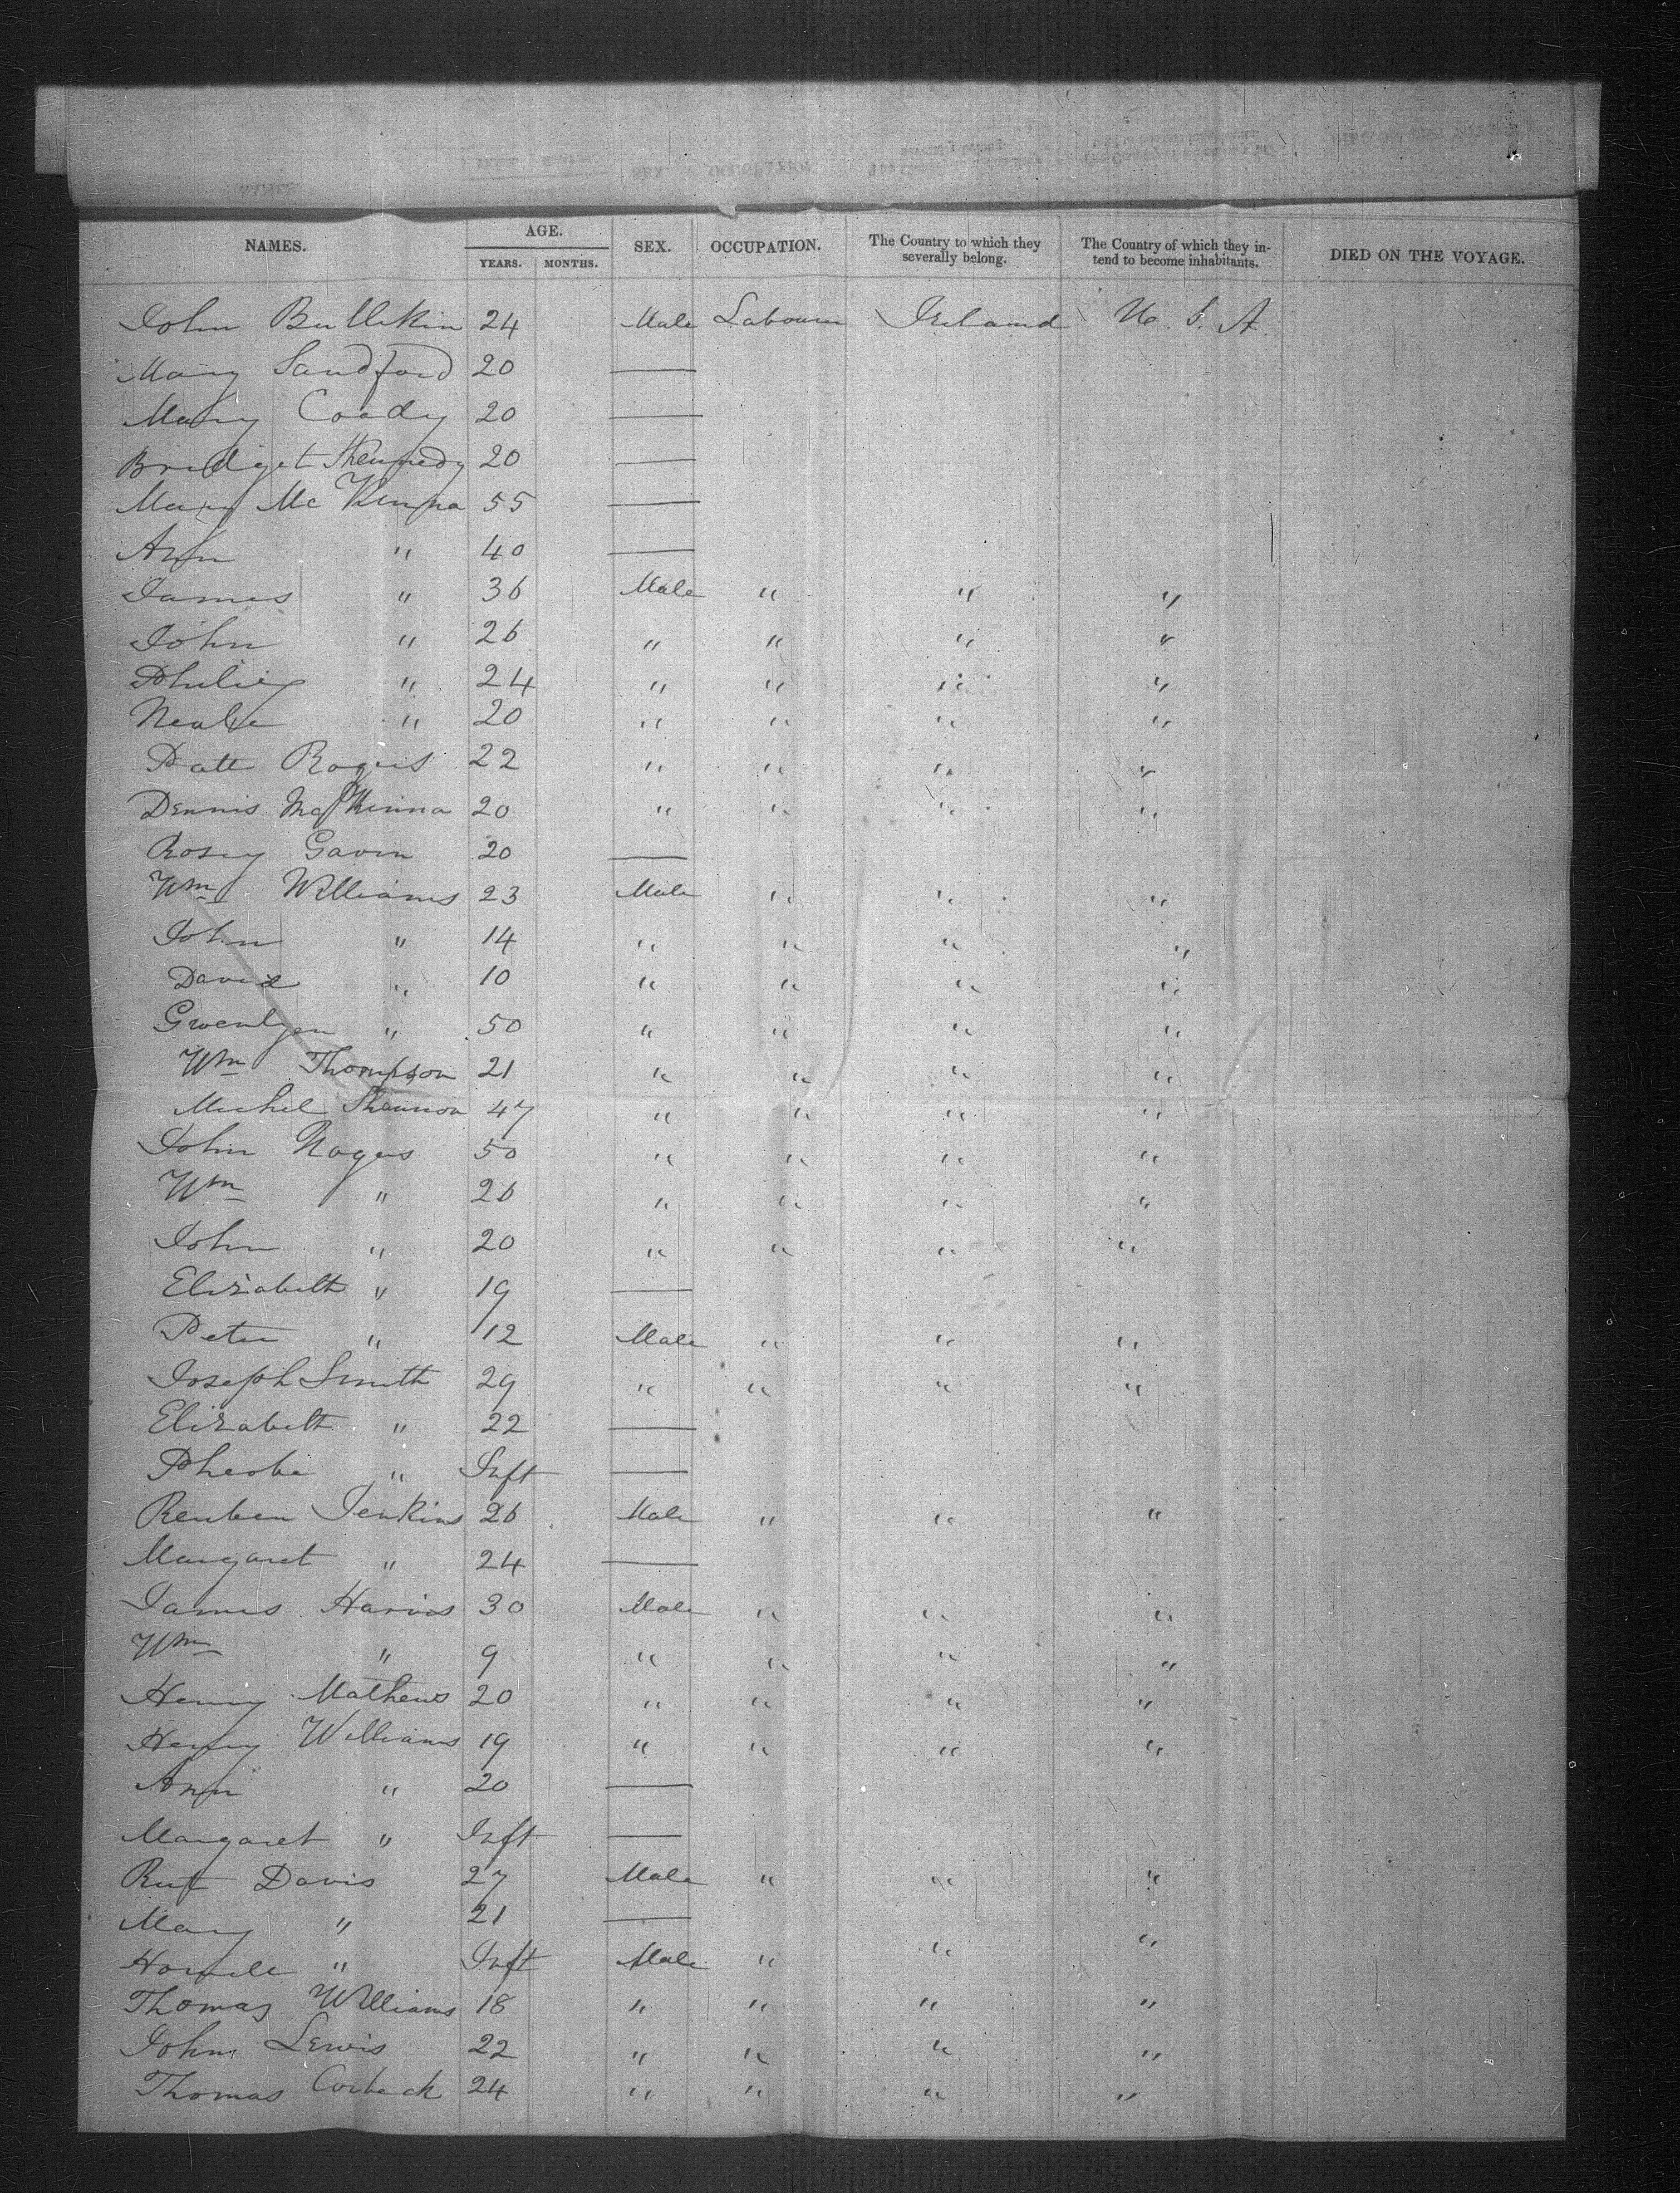 NAMES. AGE. YEARS. MONTHS. SEX. OCCUPATION. The Country to which they severally belong. The Country of which they intend to become inhabitants. DIED ON THE VOYAGE.
John Bullkin 24 Male Labourer Ireland U. S. A.
Mary Sandford 20 —
Mary Coady 20 —
Bridget Kennedy 20 —
Mary Mc Kenna 55 —
Ann " 40 —
James " 36 Male " " "
John " 26 " " " "
Philip " 24 " " " "
Neale " 20 " " " "
Patt Rogers 22 " " " "
Dennis McKenna 20 " " " "
Rosey Gavin 20 —
Wm Williams 23 Male " " "
John " 14 " " " "
David " 10 " " " "
Gwenlyen " 50 " " " "
Wm Thompson 21 " " " "
Michel Shannon 47 " " " "
John Rogers 50 " " " "
Wm " 26 " " " "
John " 20 " " " "
Elizabeth " 19 —
Peter " 12 Male " " "
Joseph Smith 29 " " " "
Elizabeth " 22 —
Pheobe " Inft —
Reuben Jenkins 26 Male " " "
Margaret " 24 —
James Harris 30 Male " " "
Wm " 9 " " " "
Henry Mathews 20 " " " "
Henry Williams 19 " " " "
Ann " 20 —
Margaret " Inft —
Davis 27 Male " " "
Mary " 21 —
Howell " Inft Male " " "
Thomas Williams 18 " " " "
John Lewis 22 " " " "
Thomas Corbeck 24 " " " "